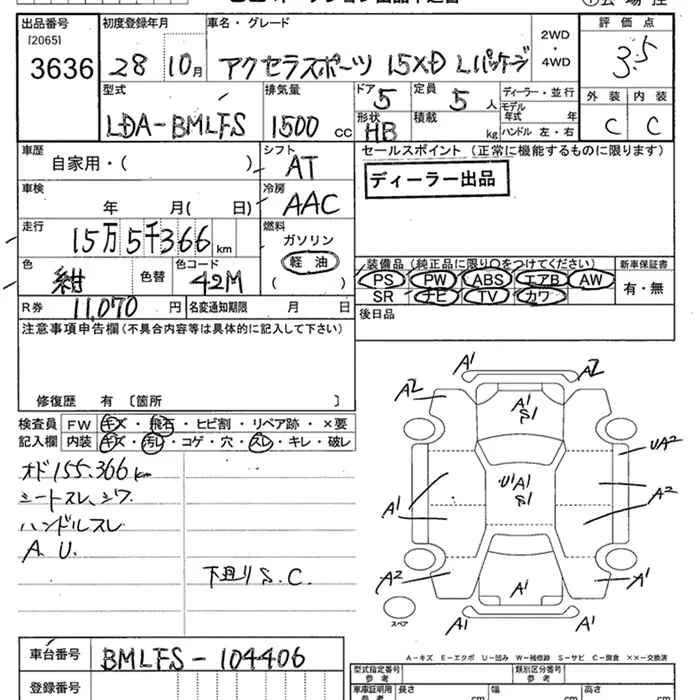 出品番号 初度登録年月 車名・グレード 評価点
[2065]
3636 28 10月 アクセラスポーツ 15XD Lパッケージ 2WD・4WD 3.5
型式 排気量 ドア 5 定員 5 人 ディーラー・並行 外装 内装
LDA-BMLFS 1500 cc 形状 HB 積載 kg モデル年式 年 ハンドル 左・右 C C
車歴 自家用・( ) シフト AT
セールスポイント (正常に機能するものに限ります)
ディーラー出品
車検 年 月( 日) 冷房 AAC
走行 15万5千366 km 燃料 ガソリン 軽油 ( )
色 紺 色替 色コード 42M
装備品 (純正品に限り○をつけてください) 新車保証書
PS PW ABS エアB AW 有・無
SR ナビ TV カワ
R券 11,070 円 名変通知期限 月 日
後日品
注意事項申告欄(不具合内容等は具体的に記入して下さい)
修復歴 有 〔箇所 〕
検査員 FW キズ・飛石・ヒビ割・リペア跡・×要
記入欄 内装 キズ・汚れ・コゲ・穴・スレ・キレ・破レ
オド155.366km
シートスレ、シワ
ハンドルスレ
A U.
下廻りS.C.
A1 A2
A2 A1 S1
UA2
U1 A1 S1
A1 A2
A2 A1 A1
A1 A1
スペア
A-キズ E-エクボ U-凹み W-補修跡 S-サビ C-腐食 ××-交換済
車台番号 BMLFS-104406
型式指定番号 参考 類別区分番号 参考
登録番号
車庫証明用 参考 長さ cm 幅 cm 高さ cm